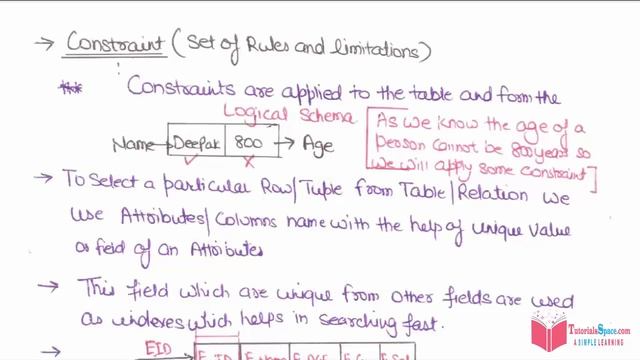 → Constraint (Set of Rules and limitations)
** Constraints are applied to the table and form the
Logical Schema
Name→ Deepak 800 → Age
✓ x
[As we know the age of a
Person cannot be 800 years so
we will apply some constraint]
→ To Select a particular Row/Tuple from Table/Relation we
use Attributes/Columns name with the help of unique value
or field of an Attributes
→ This field which are unique from other fields are used
as indexes which helps in searching fast.
→ EID
E_ID
TutorialsSpace.com
A SIMPLE LEARNING